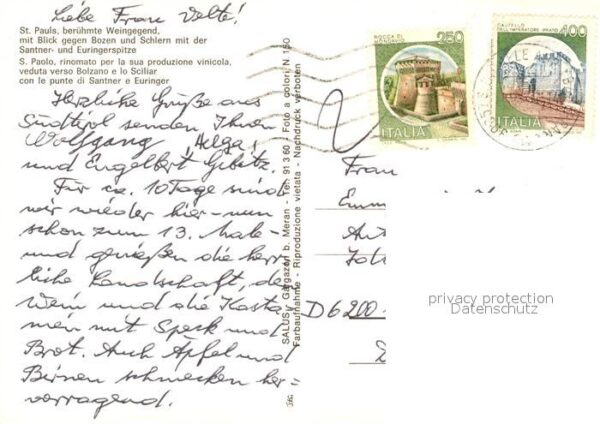 Liebe Frau Velte!
St. Pauls, berühmte Weingegend,
mit Blick gegen Bozen und Schlern mit der
Santner- und Euringerspitze
S. Paolo, rinomato per la sua produzione vinicola,
veduta verso Bolzano e lo Sciliar
con le punte di Santner e Euringer
Herzliche Grüße aus
Südtirol senden Ihnen
Wolfgang, Helga,
und Engelbert
Für ca. 10 Tage sind
wir wieder hier – nun
schon zum 13. Male –
und genießen die herr
liche Landschaft, den
Wein und die Kasta
nien mit Speck und
Brot. Auch Äpfel und
Birnen schmecken her-
vorragend.
SALUS, Gargazon b. Meran - Tel. 91 3 60 / Foto a colori N 150
Farbaufnahme - Riproduzione vietata - Nachdruck verboten
ROCCA DI
MONDAVIO
250
ITALIA
CASTELLO
DELL'IMPERATORE - PRATO
400
ITALIA
Frau
Emm
D 6200
privacy protection
Datenschutz